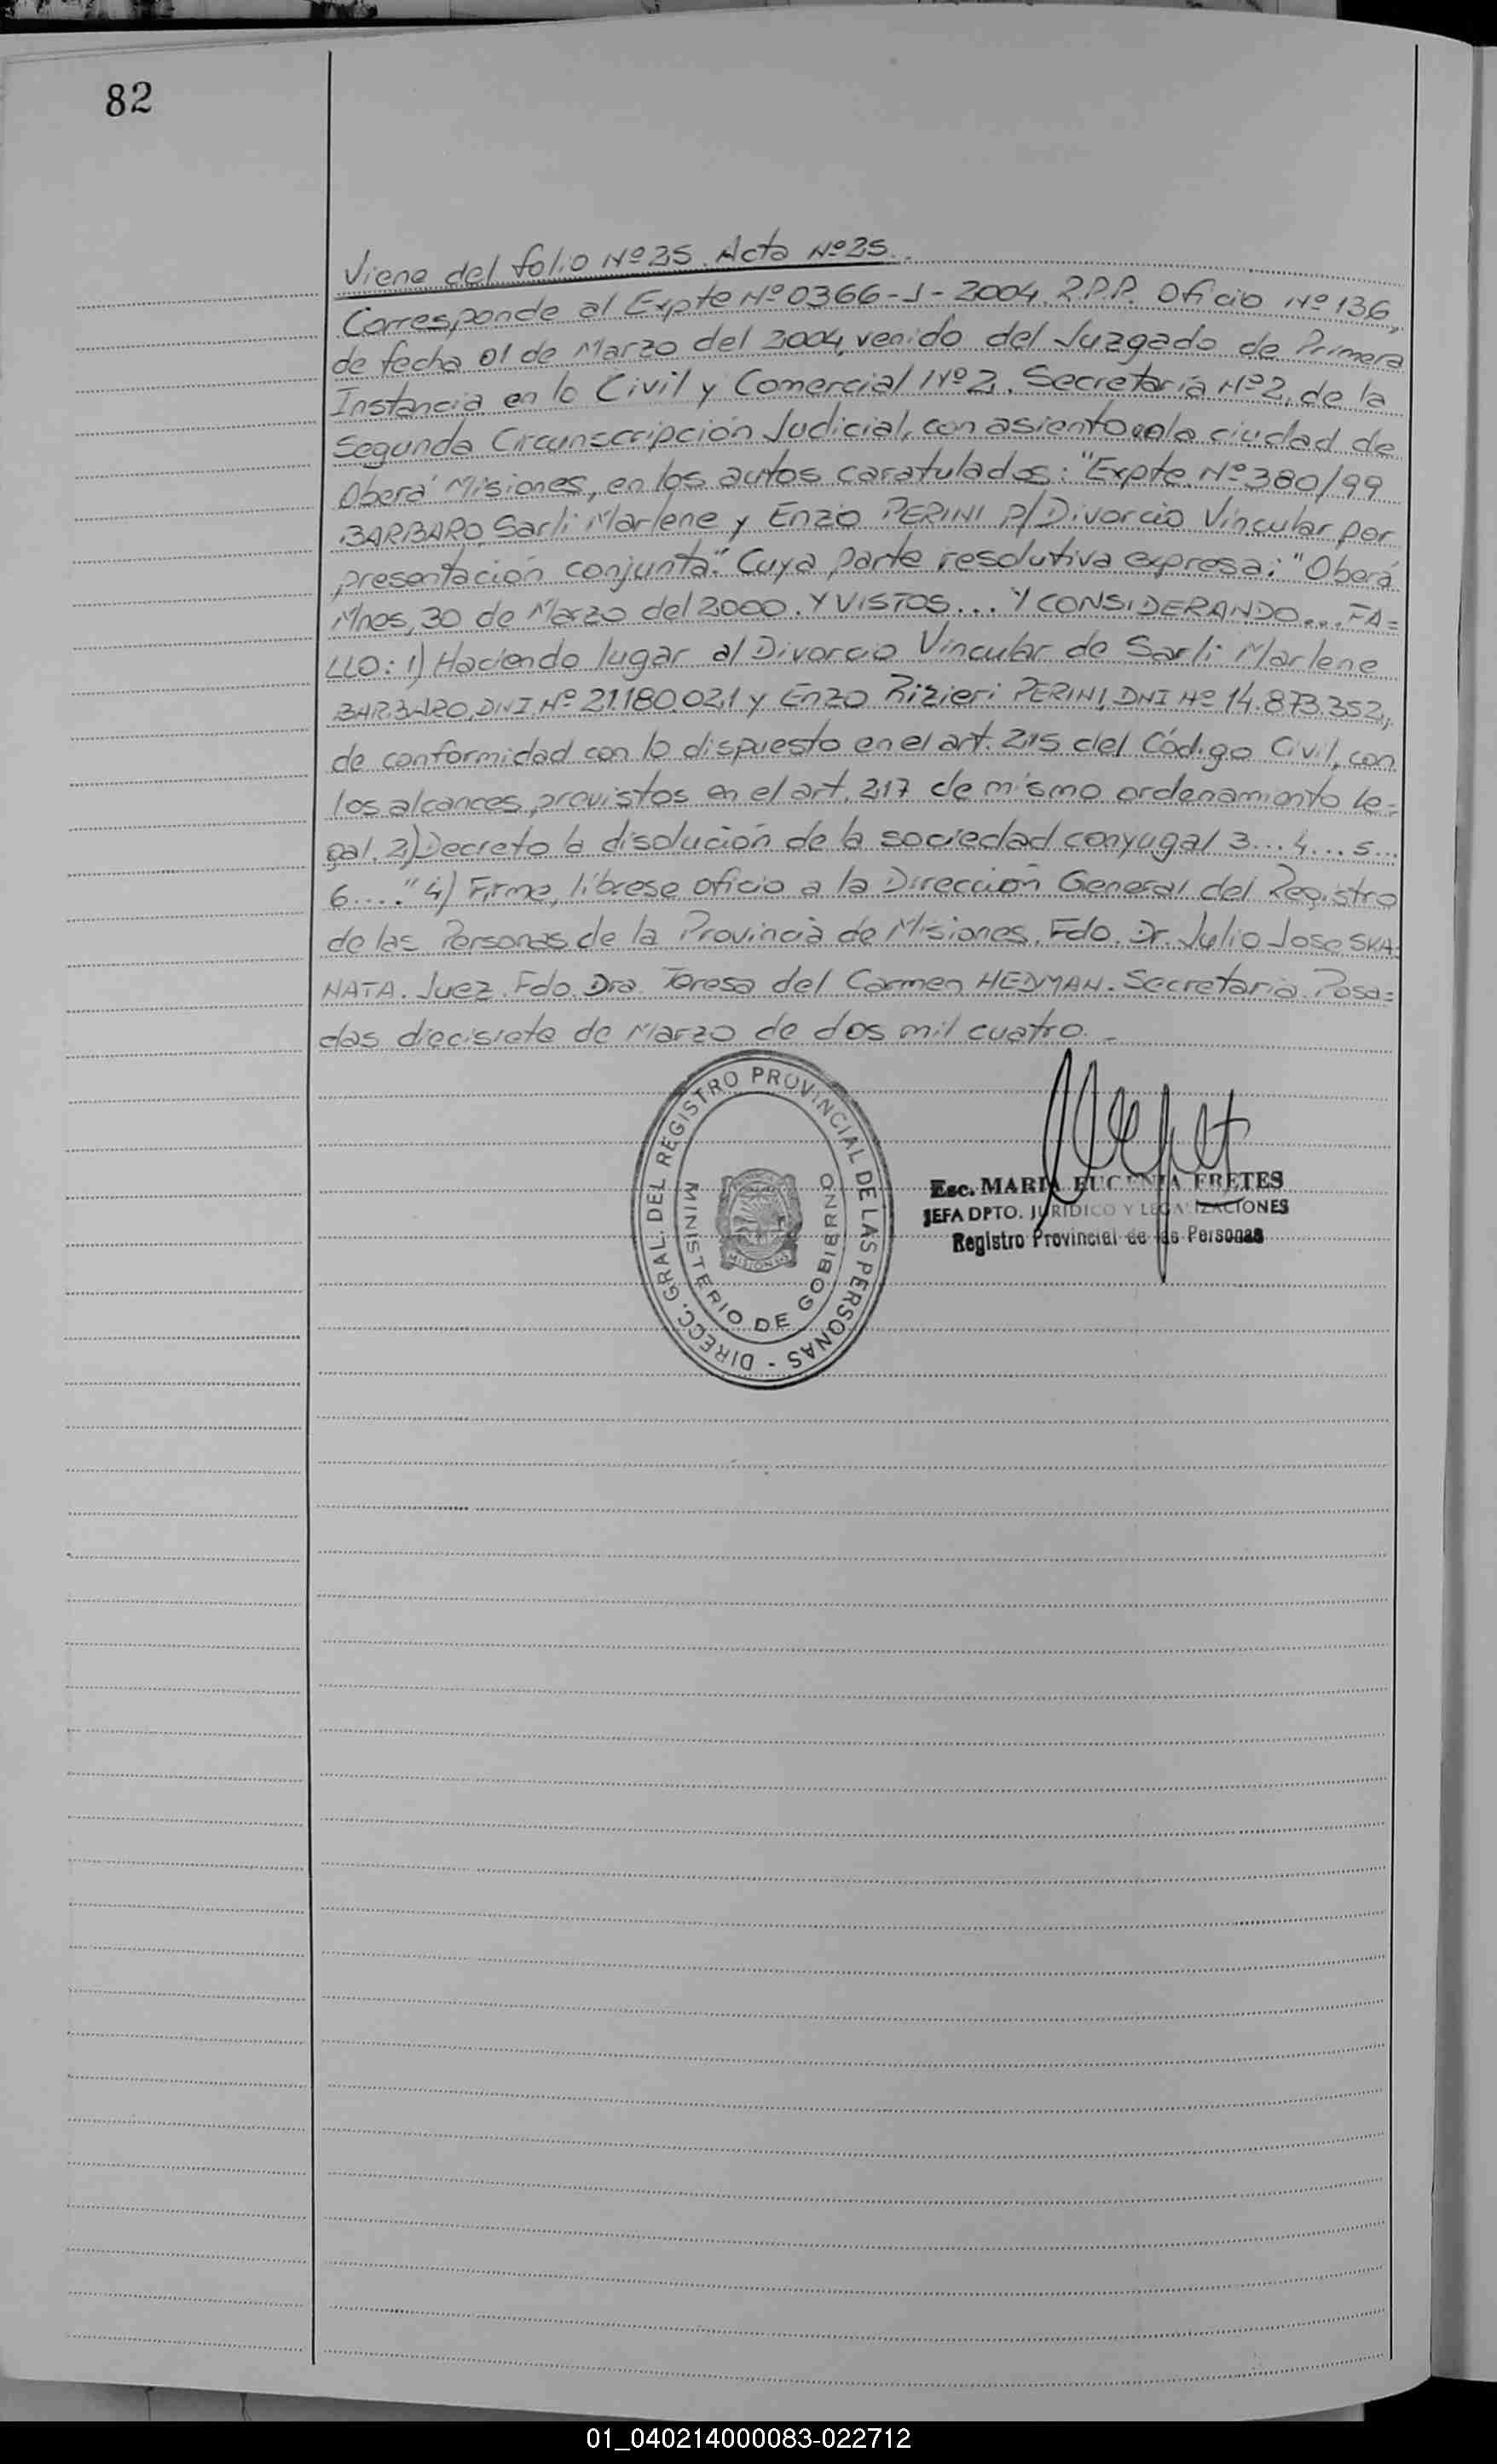 82
Viene del folio Nº 25. Acta Nº 25..
Corresponde al Expte Nº 0366-J-2004. R.P.P. Oficio Nº 136,
de fecha 01 de Marzo del 2004, venido del Juzgado de Primera
Instancia en lo Civil y Comercial Nº 2, Secretaría Nº 2, de la
Segunda Circunscripción Judicial, con asiento en la ciudad de
Oberá Misiones, en los autos caratulados: "Expte Nº 380/99
BARBARO, Sarli Marlene y Enzo PERINI p/ Divorcio Vincular por
presentación conjunta". Cuya parte resolutiva expresa: "Oberá
Mnes, 30 de Marzo del 2000. Y VISTOS... Y CONSIDERANDO... FA=
LLO: 1) Haciendo lugar al Divorcio Vincular de Sarli Marlene
BARBARO, DNI Nº 21.180.021 y Enzo Rizieri PERINI, DNI Nº 14.873.352,
de conformidad con lo dispuesto en el art. 215 del Código Civil, con
los alcances previstos en el art. 217 de mismo ordenamiento le=
gal. 2) Decreto la disolución de la sociedad conyugal 3...4...5...
6...." 4) Firme, líbrese oficio a la Dirección General del Registro
de las Personas de la Provincia de Misiones. Fdo. Dr. Julio Jose SKA=
NATA. Juez. Fdo. Dra. Teresa del Carmen HEDMAN. Secretaria. Posa=
das diecisiete de Marzo de dos mil cuatro.-
DIRECC. GRAL. DEL REGISTRO PROVINCIAL DE LAS PERSONAS -
MINISTERIO DE GOBIERNO
MISIONES
Esc. MARIA EUGENIA FRETES
JEFA DPTO. JURIDICO Y LEGALIZACIONES
Registro Provincial de las Personas
01_040214000083-022712